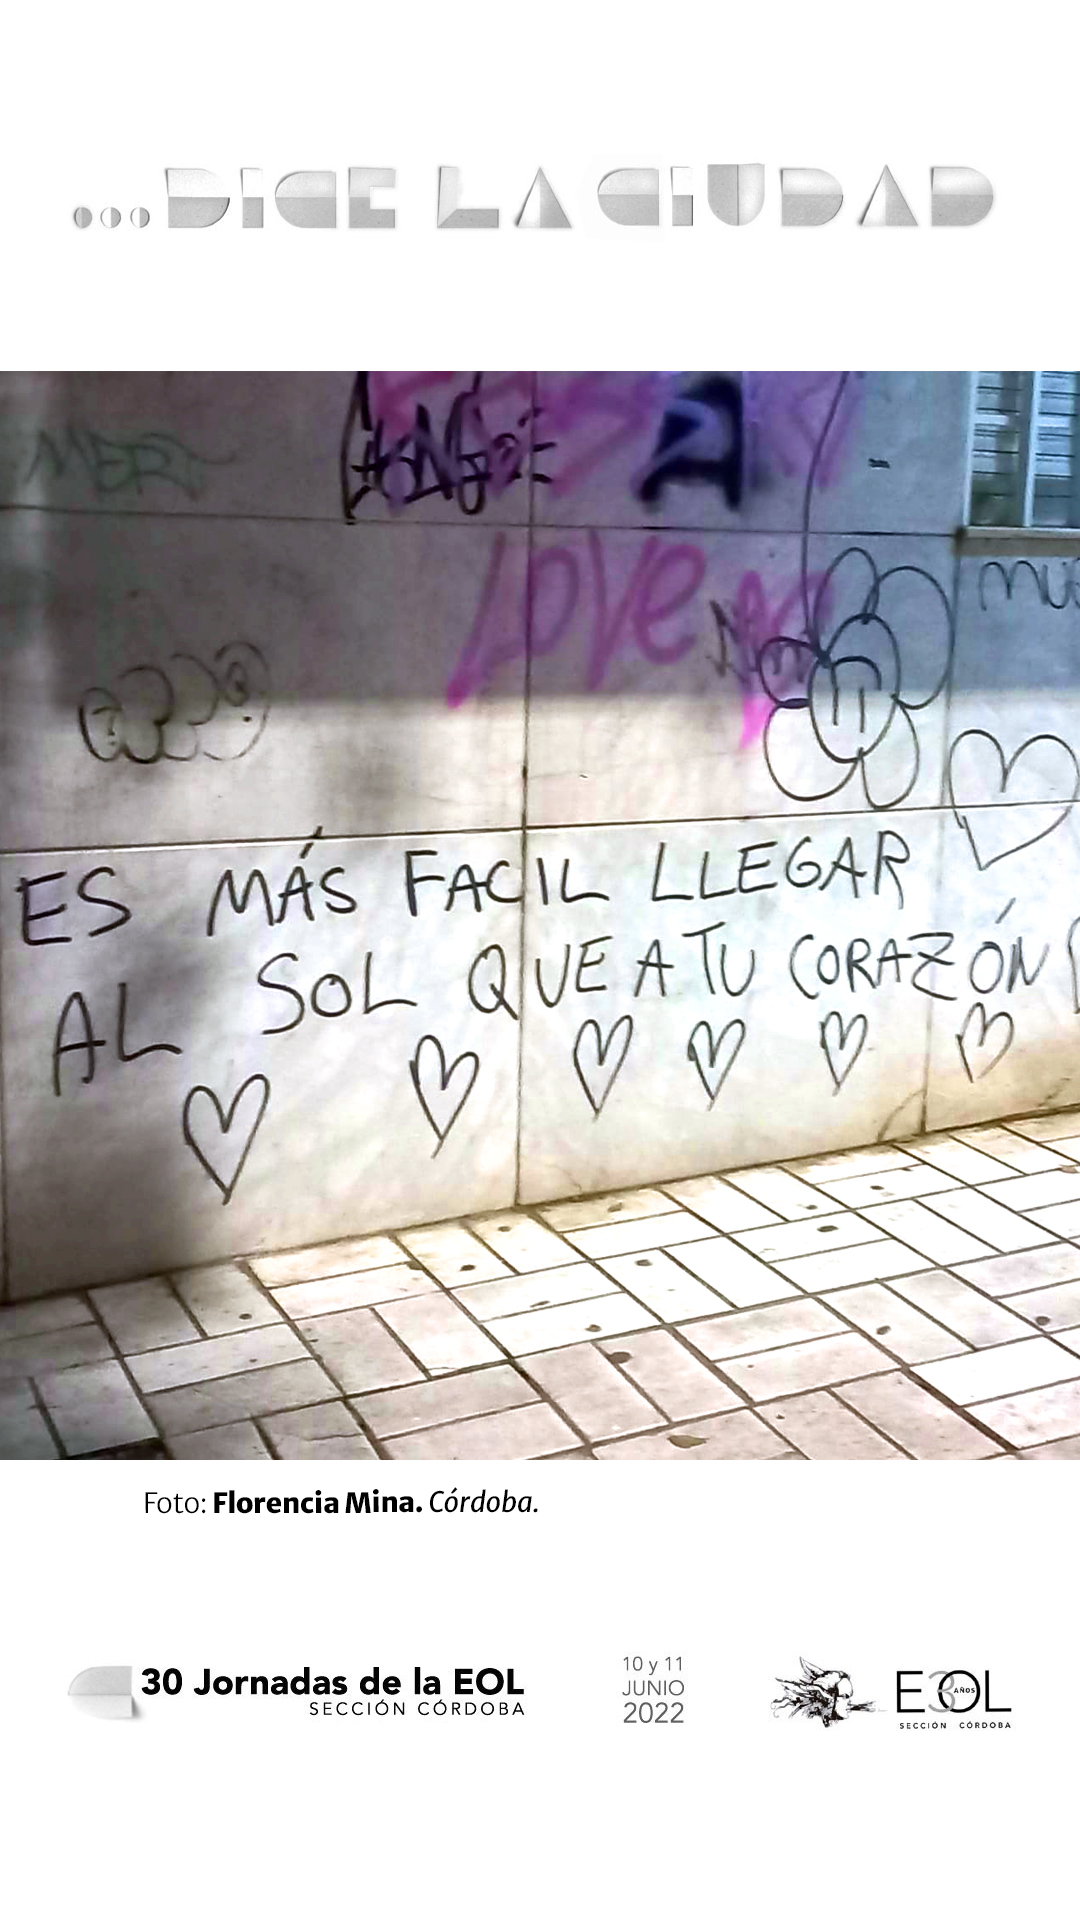 ...DICE LA CIUDAD
LOVE
ES MÁS FACIL LLEGAR
AL SOL QUE A TU CORAZÓN
Foto: Florencia Mina. Córdoba.
30 Jornadas de la EOL
SECCIÓN CÓRDOBA
10 y 11
JUNIO
2022
EOL
30 AÑOS
SECCIÓN CÓRDOBA